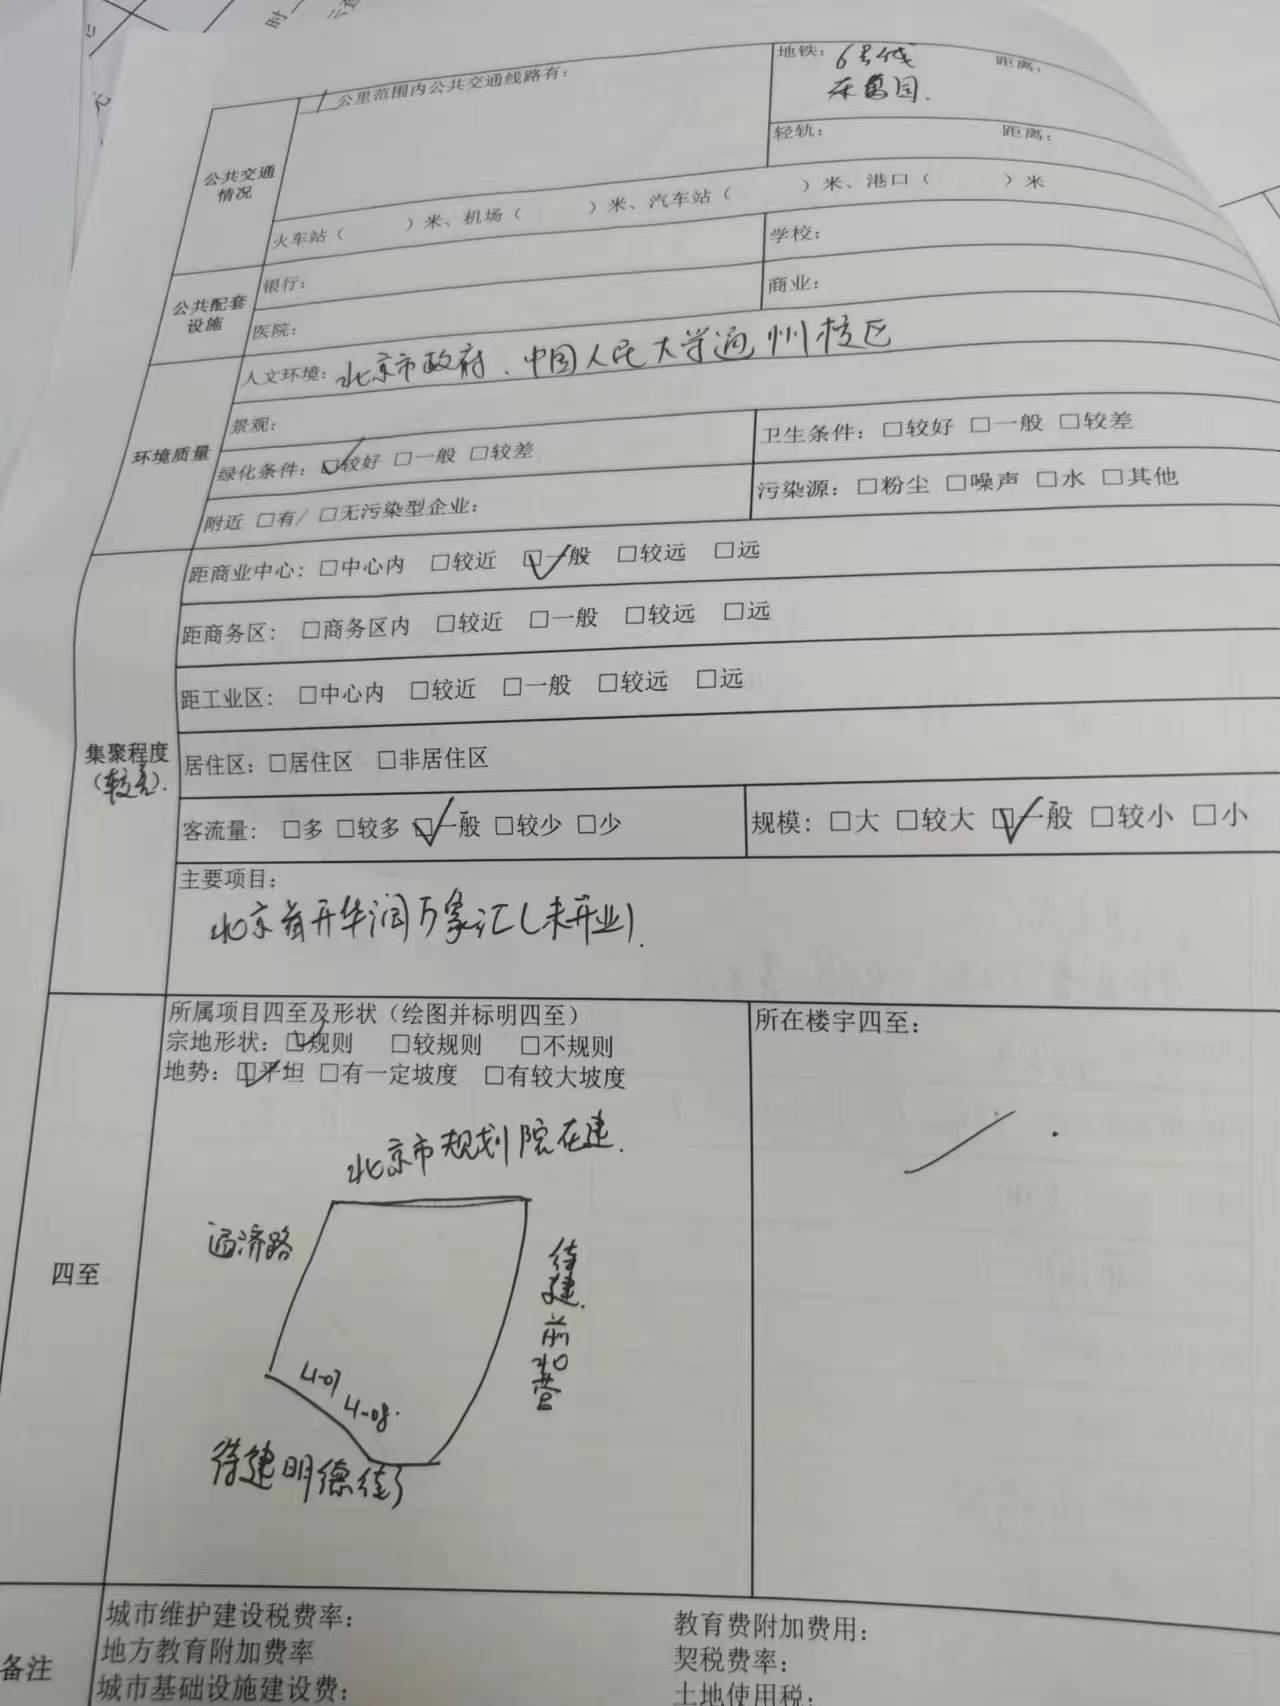 时
元
公共交通
情况
1公里范围内公共交通线路有：
地铁：6号线
距离：
轻轨：
距离：
火车站（ ）米、机场（ ）米、汽车站（ ）米、港口（ ）米
公共配套
设施
银行：
学校：
医院：
商业：
环境质量
人文环境：北京市政府、中国人民大学通州校区
景观：
绿化条件：☑较好 □一般 □较差
卫生条件：□较好 □一般 □较差
附近 □有/ □无污染型企业：
污染源：□粉尘 □噪声 □水 □其他
集聚程度
（较差）.
距商业中心：□中心内 □较近 ☑一般 □较远 □远
距商务区：□商务区内 □较近 □一般 □较远 □远
距工业区：□中心内 □较近 □一般 □较远 □远
居住区：□居住区 □非居住区
客流量：□多 □较多 ☑一般 □较少 □少
规模：□大 □较大 ☑一般 □较小 □小
主要项目：
北京首开华润万象汇（未开业）.
四至
所属项目四至及形状（绘图并标明四至）
宗地形状：☑规则 □较规则 □不规则
地势：☑平坦 □有一定坡度 □有较大坡度
所在楼宇四至：
北京市规划院在建.
通济路
待建.前北营
4-07
4-08.
待建明德街
备注
城市维护建设税费率：
教育费附加费用：
地方教育附加费率
契税费率：
城市基础设施建设费：
土地使用税：